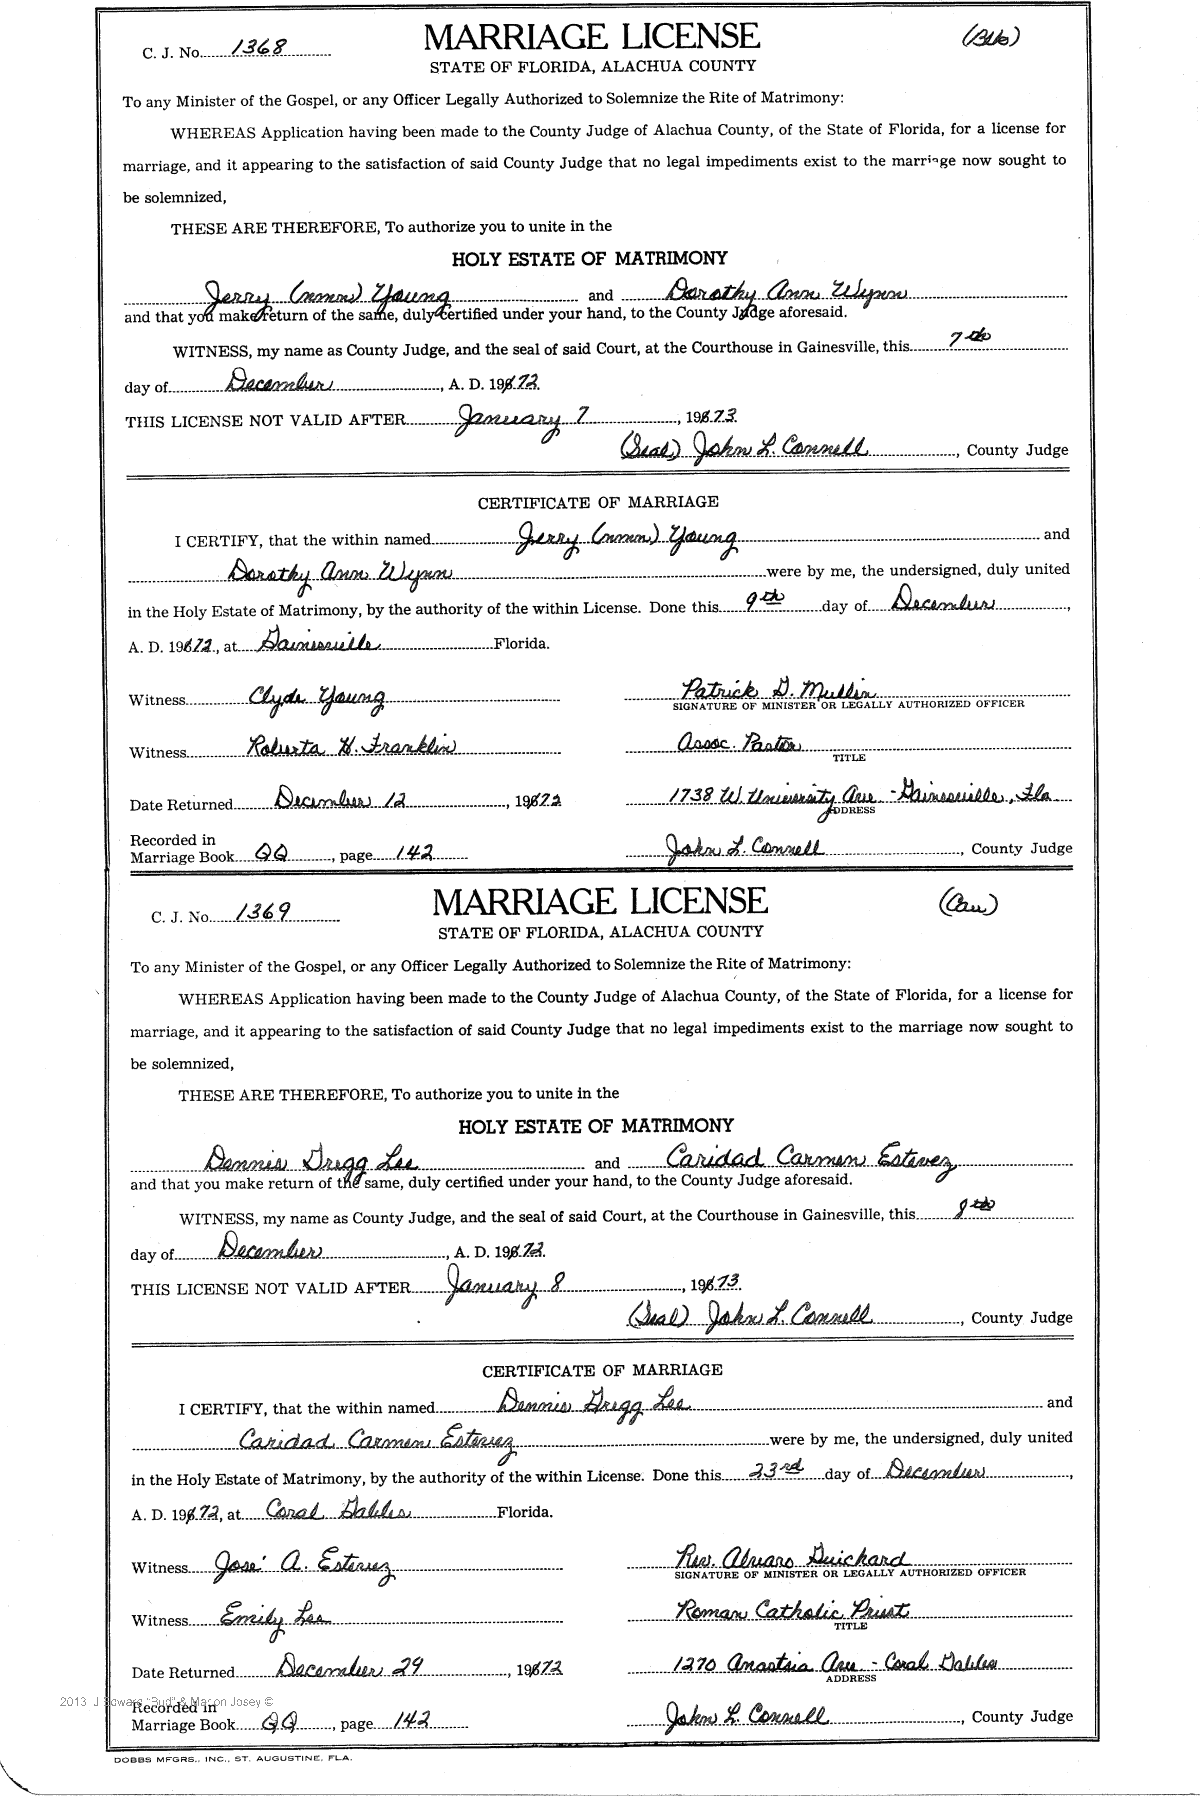 C. J. No. 1368 MARRIAGE LICENSE (Blk)
STATE OF FLORIDA, ALACHUA COUNTY
To any Minister of the Gospel, or any Officer Legally Authorized to Solemnize the Rite of Matrimony:
WHEREAS Application having been made to the County Judge of Alachua County, of the State of Florida, for a license for
marriage, and it appearing to the satisfaction of said County Judge that no legal impediments exist to the marriage now sought to
be solemnized,
THESE ARE THEREFORE, To authorize you to unite in the
HOLY ESTATE OF MATRIMONY
Jerry (nmn) Young and Dorothy Ann Wynn
and that you make return of the same, duly certified under your hand, to the County Judge aforesaid.
WITNESS, my name as County Judge, and the seal of said Court, at the Courthouse in Gainesville, this 7th
day of December, A. D. 1972.
THIS LICENSE NOT VALID AFTER January 7, 1973.
(Seal) John L. Connell, County Judge
CERTIFICATE OF MARRIAGE
I CERTIFY, that the within named Jerry (nmn) Young and
Dorothy Ann Wynn were by me, the undersigned, duly united
in the Holy Estate of Matrimony, by the authority of the within License. Done this 9th day of December,
A. D. 1972, at Gainesville Florida.
Witness Clyde Young Patrick D. Mullin
SIGNATURE OF MINISTER OR LEGALLY AUTHORIZED OFFICER
Witness Roberta H. Franklin Assoc. Pastor
TITLE
Date Returned December 12, 1972 1738 W. University Ave - Gainesville, Fla
ADDRESS
Recorded in
Marriage Book QQ, page 142 John L. Connell, County Judge
C. J. No. 1369 MARRIAGE LICENSE (Cau)
STATE OF FLORIDA, ALACHUA COUNTY
To any Minister of the Gospel, or any Officer Legally Authorized to Solemnize the Rite of Matrimony:
WHEREAS Application having been made to the County Judge of Alachua County, of the State of Florida, for a license for
marriage, and it appearing to the satisfaction of said County Judge that no legal impediments exist to the marriage now sought to
be solemnized,
THESE ARE THEREFORE, To authorize you to unite in the
HOLY ESTATE OF MATRIMONY
Dennis Gregg Lee and Caridad Carmen Estevez
and that you make return of the same, duly certified under your hand, to the County Judge aforesaid.
WITNESS, my name as County Judge, and the seal of said Court, at the Courthouse in Gainesville, this 8th
day of December, A. D. 1972.
THIS LICENSE NOT VALID AFTER January 8, 1973.
(Seal) John L. Connell, County Judge
CERTIFICATE OF MARRIAGE
I CERTIFY, that the within named Dennis Gregg Lee and
Caridad Carmen Estevez were by me, the undersigned, duly united
in the Holy Estate of Matrimony, by the authority of the within License. Done this 23rd day of December,
A. D. 1972, at Coral Gables Florida.
Witness José A. Estevez Rev. Alvaro Guichard
SIGNATURE OF MINISTER OR LEGALLY AUTHORIZED OFFICER
Witness Emily Lee Roman Catholic Priest
TITLE
Date Returned December 29, 1972 1270 Anastsia Ave - Coral Gables
ADDRESS
2013 J Edward "Bud" & Mason Josey ©
Recorded in
Marriage Book QQ, page 142 John L. Connell, County Judge
DOBBS MFGRS., INC., ST. AUGUSTINE, FLA.